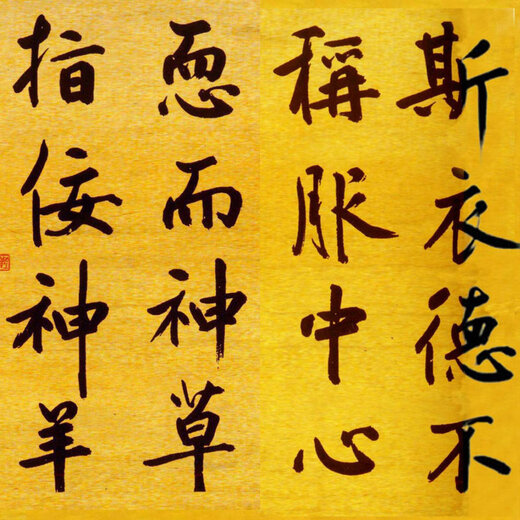 斯衣德不
稱服中心
恧而神草
指佞神羊